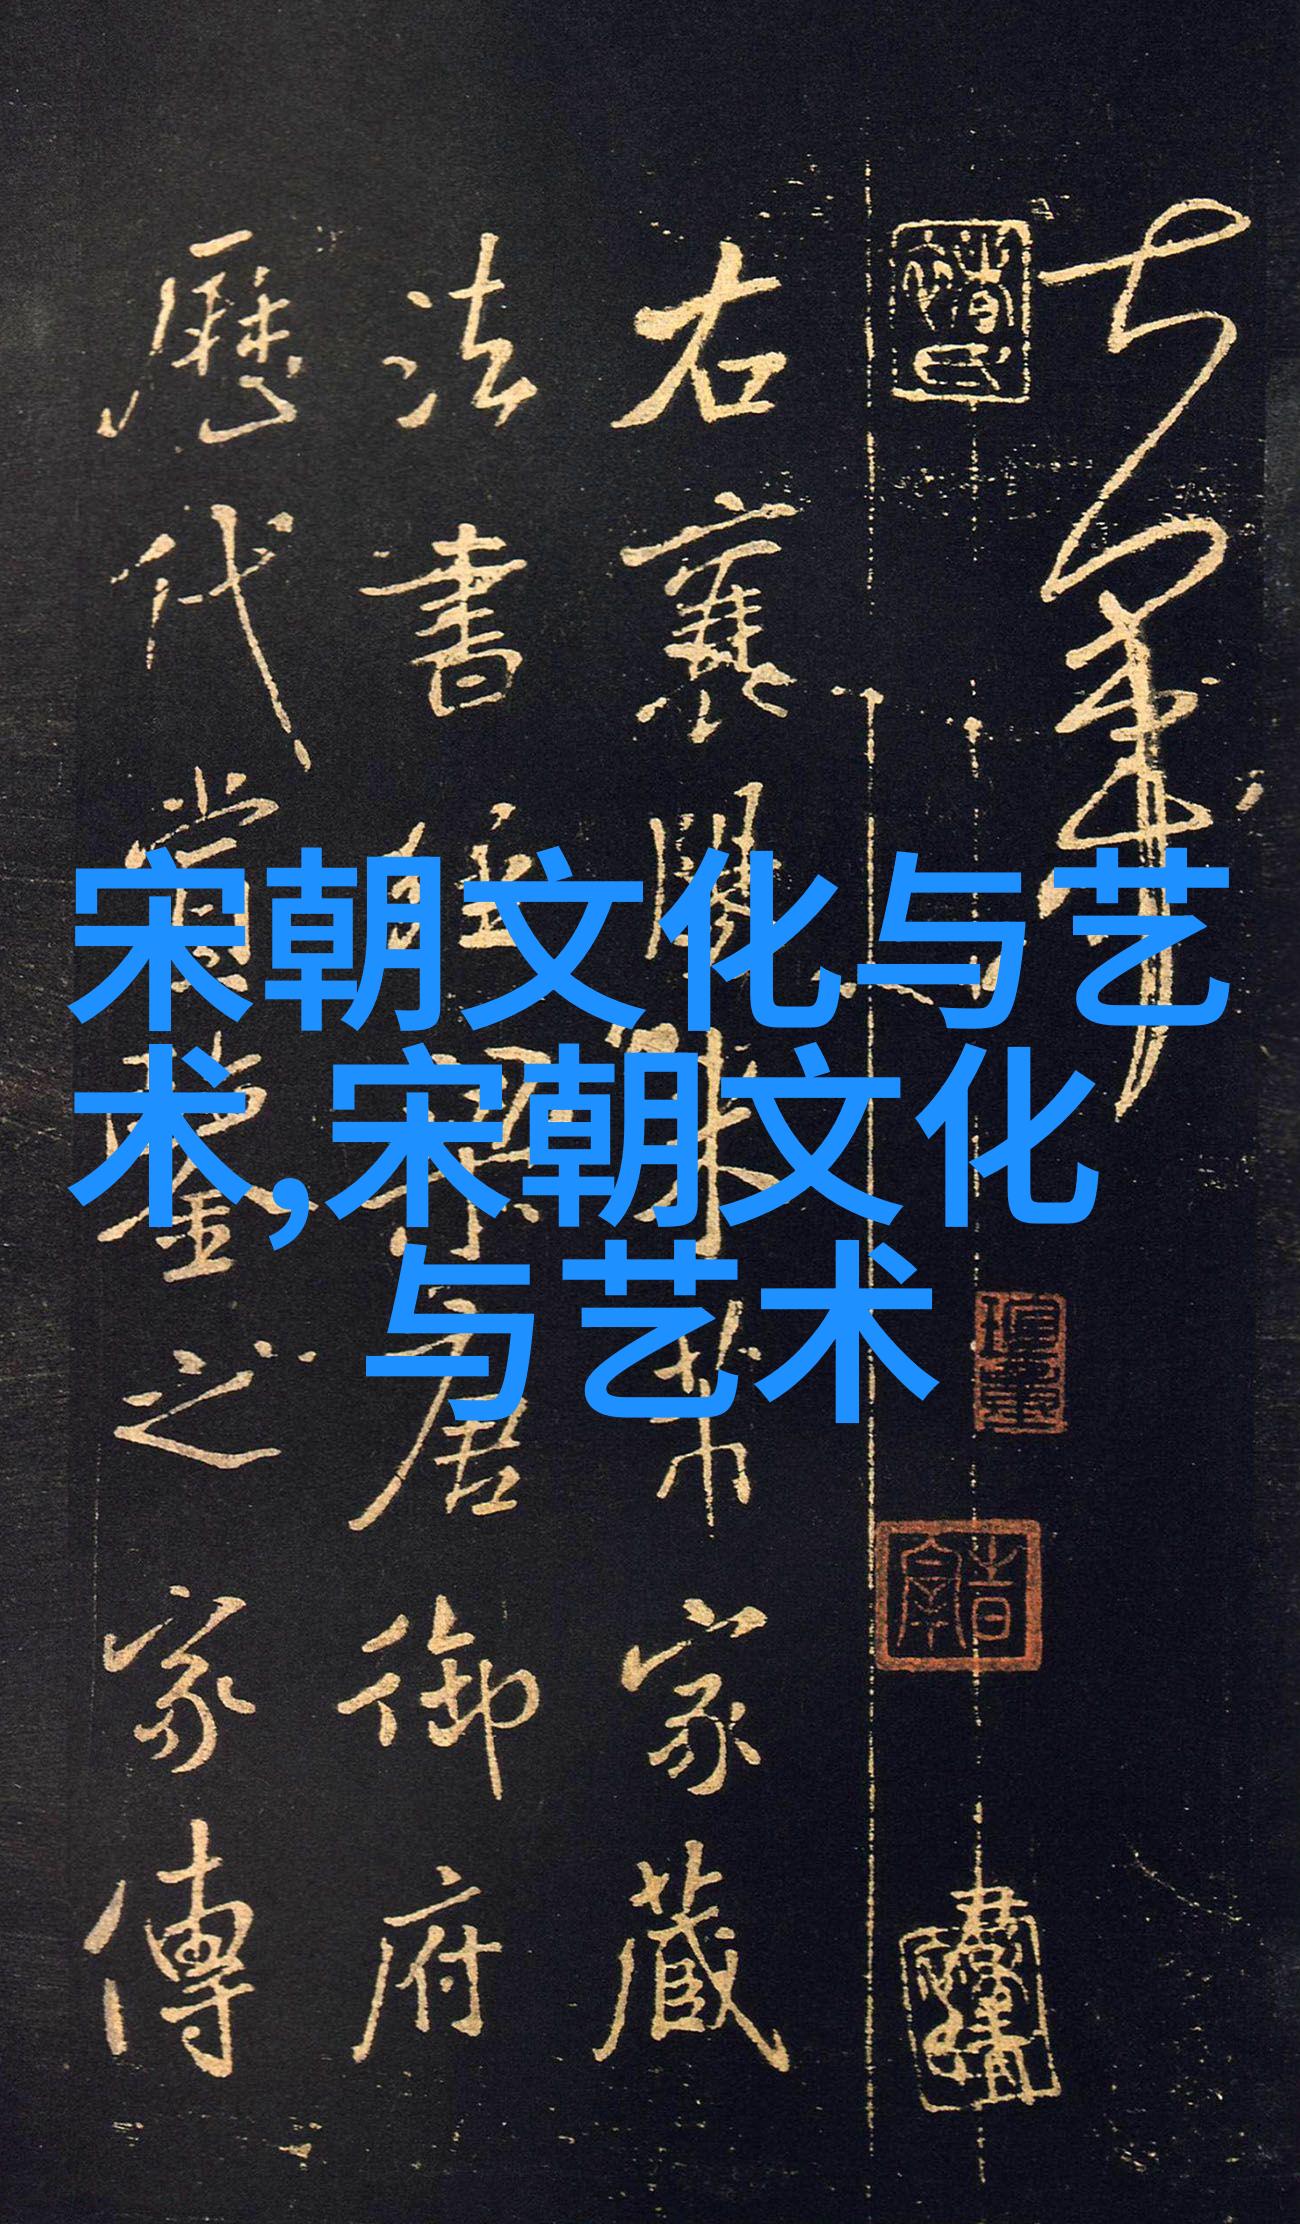 宋朝文化与艺
术,宋朝文化
与艺术
右襄米芾家藏
法書經唐御府
歷代賞鑒之家傳